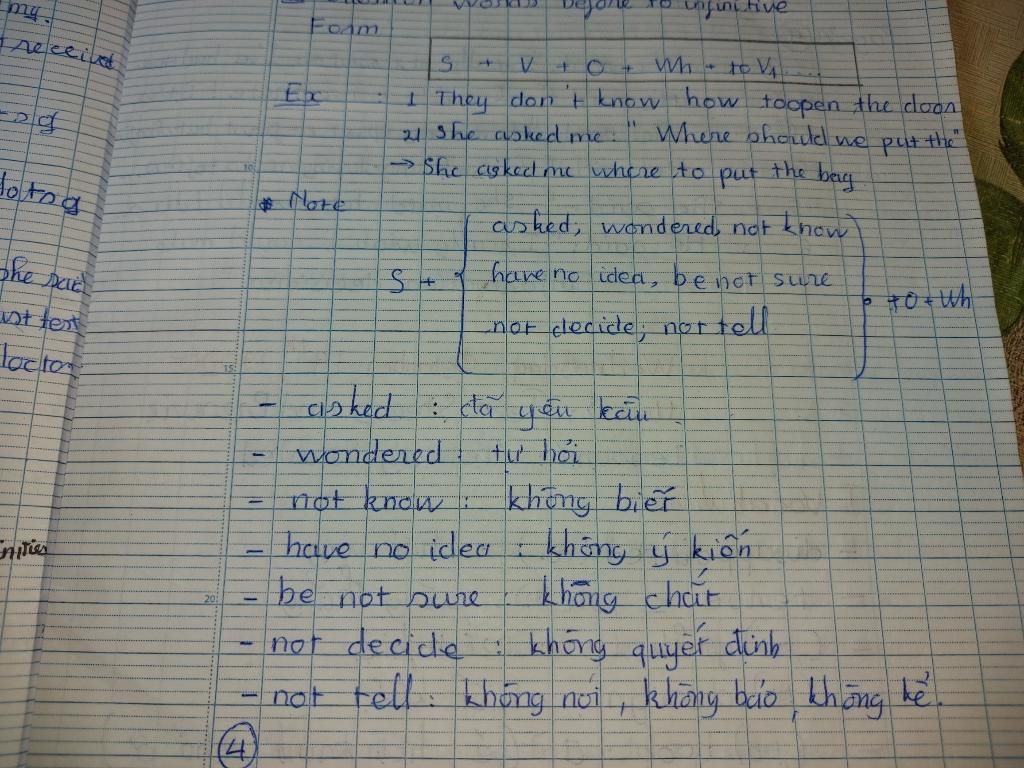 my.
received
Question Words before to infinitive
Form
S + V + O + Wh + to V1 ....
Ex : 1 They don't know how toopen the door
2) She asked me: " Where should we put the"
→ She asked me where to put the bag
* Note
S + { asked, wondered, not know
have no idea, be not sure
not decide, not tell } + O + Wh
- asked : đã yêu kàu
- wondered : tự hỏi
- not know : không biết
- have no idea : không ý kiến
- be not sure : không chắt
- not decide : không quyết định
- not tell : không nói, không báo, không kể.
4
she said
doctor
10
15
20